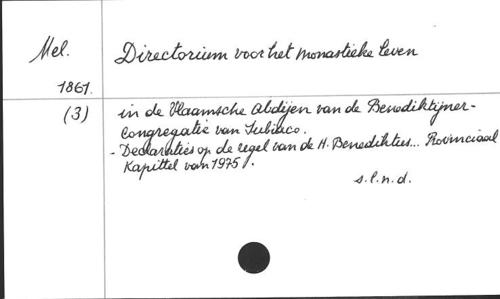 Mel. Directorium voor het monastieke leven
1861.
(3) in de Vlaamsche Abdijen van de Benediktijner-
Congregatie van Subiaco.
- Declaraties op de regel van de H. Benediktus... Provinciaal
Kapittel van 1975/.
s.l.n.d.